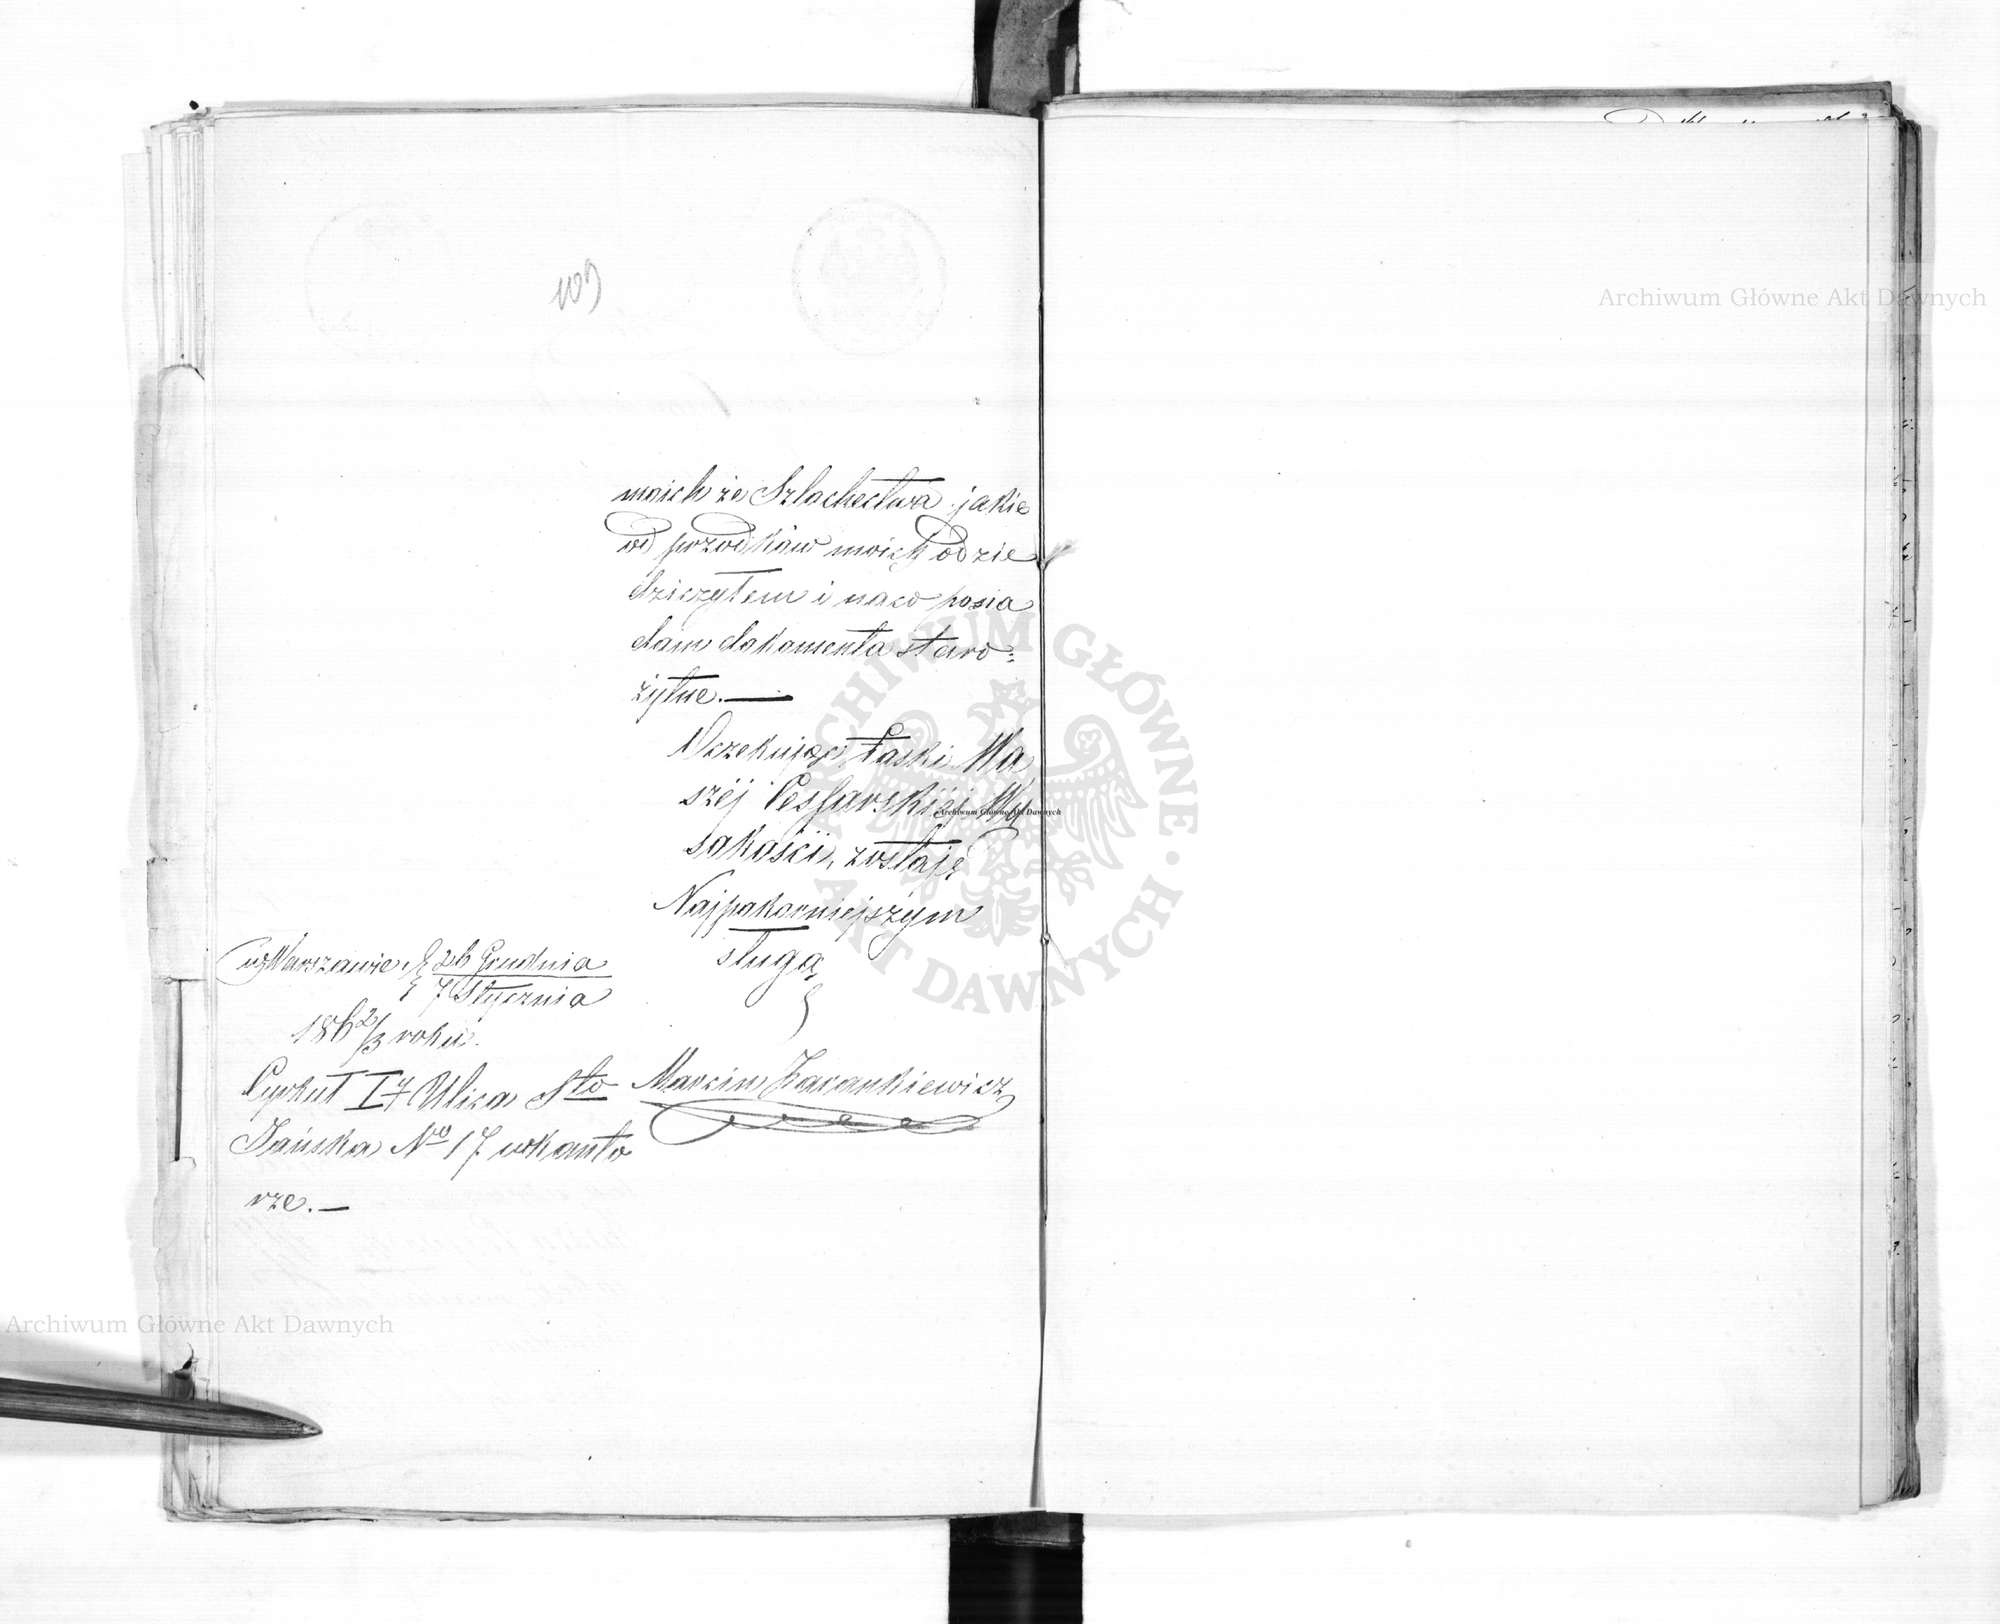 103
moich ze Szlachectwa jakie
od przodków moich odzie
dziczyłem i naco posia
dam dokomenta staro=
żytne.—
Oczekując łaski Wa
széj Cessarskiéj Wy
sokości, zostaję
Najpokorniejszym
sługą
w Warszawie d. 26 Grudnia
7 Stycznia
186 2/3 roku.
Marcin Zacankiewicz
Cyrkuł I7 Ulica Sto
Jańska No 17 w kanto
rze.—
Archiwum Główne Akt Dawnych
Archiwum Główne Akt Dawnych
Archiwum Główne Akt Dawnych
ARCHIWUM GŁÓWNE AKT DAWNYCH